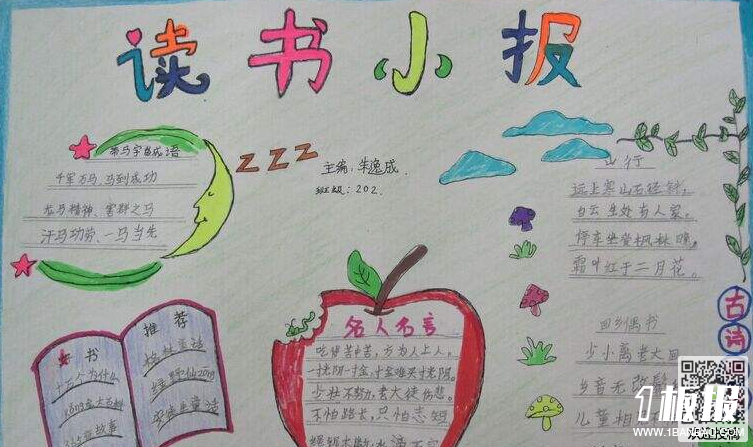 读书小报
带马字的成语
千军万马、马到成功
龙马精神、害群之马
汗马功劳、一马当先
ZZZ
主编:朱逸成
班级:202.
山行
远上寒山石径斜,
白云生处有人家。
停车坐爱枫林晚,
霜叶红于二月花。
名人名言
吃得苦中苦,方为人上人。
一寸光阴一寸金,寸金难买寸光阴。
少壮不努力,老大徒伤悲。
不怕路长,只怕志短
推荐
书
十万个为什么
格林童话
绿野仙
安徒生童话
故事
古诗
回乡偶书
少小离老大回
乡音无
儿童相
1板报
WWW.1BANBAO.COM